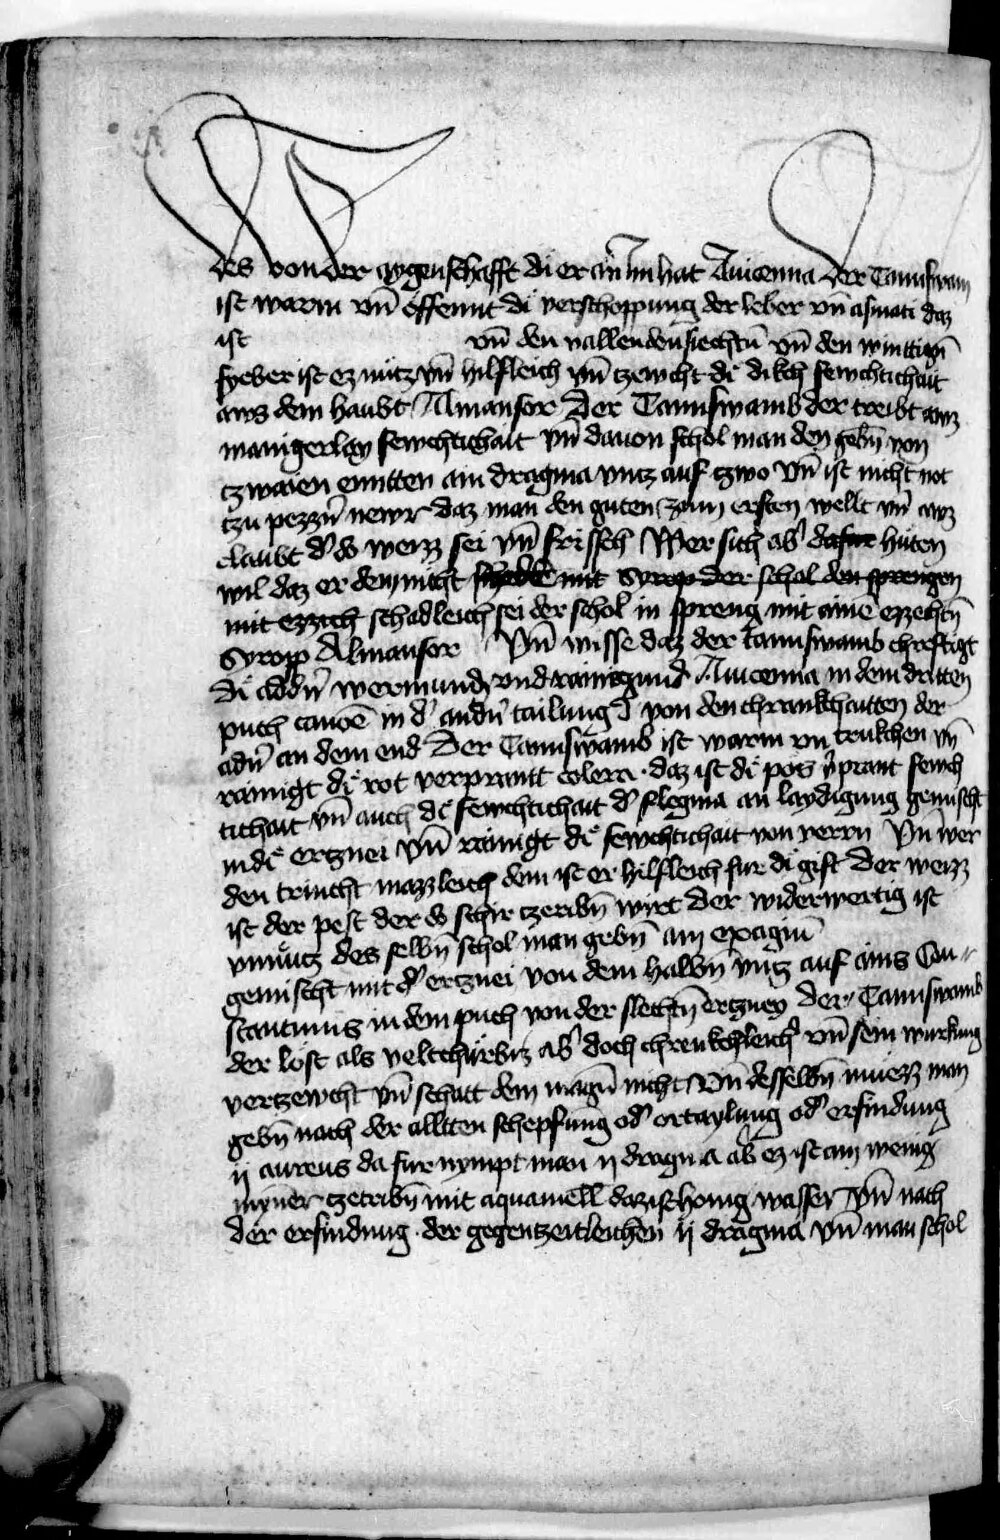 des von der aygenschafft di er an im hat Auicenna der Tannswam
ist warm vn̄ offennt di verschoppung der leber vn̄ asmati daz
ist vn̄ den vallenden siechtū vn̄ den winttign̄
fyeber ist ez nutz vn̄ hilfleich vn̄ tzewcht di dikch fewchtichait
aws dem haubt Almansor Der Tannswamb der treibt awz
manigerlay fewchtichait vn̄ dauon schol man den gebn̄ von
tzwaien enmitten ain dragma vntz auf tzwo vn̄ ist nicht not
tzu pezzn̄ newr daz man den guten zum ersten wellt vn̄ awz
claubt d' do weizz sei vn̄ frissch Wer sich ab' dafur hüten
wil daz er dem nicht mit Syrop der schol den sprengen
mit ezzich schadleich sei der schol in spreng mit ainē ezzichn̄
Syrop Almansor Vn̄ wisse daz der tannswamb chreftigt
di addn̄ wermund vnd rainigund Auicenna in dem dritten
puch canoē in d' andn̄ tailung von den chrankchaitten der
adn̄ an dem end Der Tannswamb ist warm vn trukchen vn̄
rainigt di rot verprantt colera · daz ist di pos v'prant fewch
tichait vn̄ auch di fewchtichait d' flegma an laydigung gemischt
in di ertznei vn̄ rainigt di fewchtichait von verrn Vn̄ wer
den trincht mazzleich dem ist er hilfleich fur di gift Der weizz
ist der pest der do schir tzeribn̄ wirt Der widerwertig ist
vnnutz des selbn̄ schol man gebn̄ ain exagiū
gemischt mit d' ertznei von dem halbn̄ vntz auf ains Con
stantinus in dem puch von der slechtn̄ ertzney Der Tannswamb
der löst als veltchürbiz ab' doch chrenkchleich' vn̄ sein würkung
vertzewcht vn̄ schatt dem magn̄ nicht Vn̄ desselbn̄ muezz man
gebn̄ nach der alltten schepfung od' ortaylung od' erfindung
ij aureus da fur nympt man ij dragma ab' ez ist ain wenig
mynner tzetribn̄ mit aquamell daz ist honig wasser Vn̄ nach
der erfindung · der gegentzeitleichen ij dragma vn̄ man schol